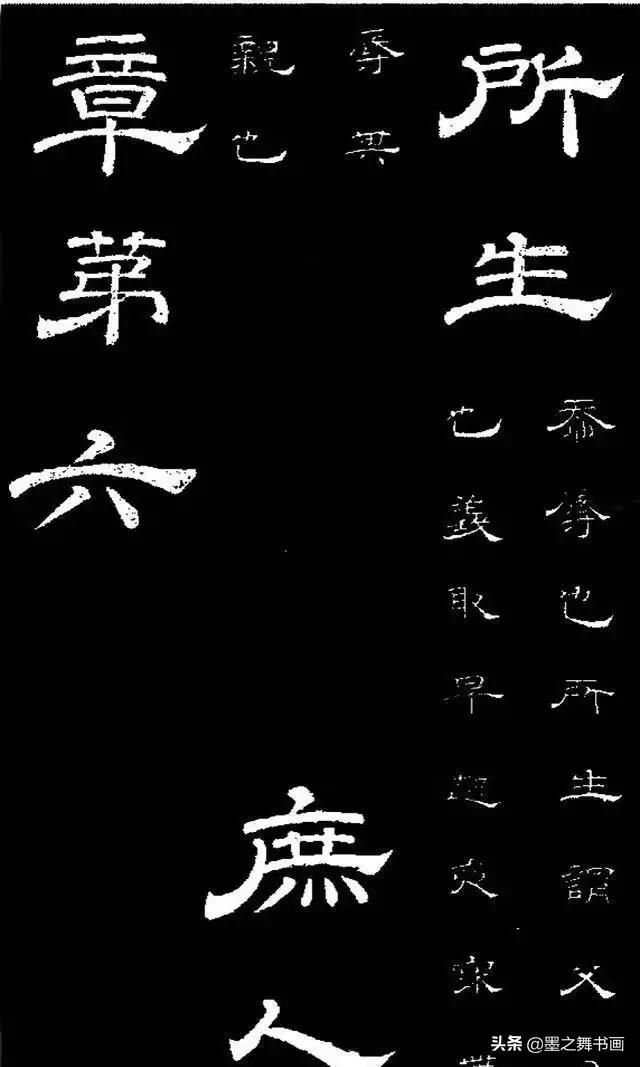 所生
忝辱也所生謂父
也義取早起夜寐
辱其
親也
庶人
章第六
头条 @墨之舞书画